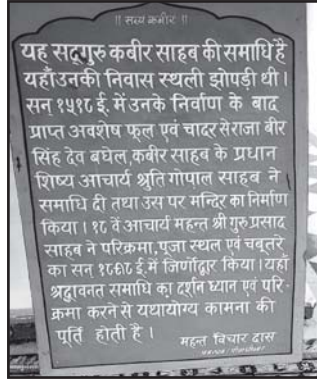 ॥ सत्य कबीर ॥
यह सद्गुरु कबीर साहब की समाधि है
यहाँ उनकी निवास स्थली झोपड़ी थी।
सन् १५१८ ई. में उनके निर्वाण के बाद
प्राप्त अवशेष फूल एवं चादर से राजा बीर
सिंह देव बघेल, कबीर साहब के प्रधान
शिष्य आचार्य श्रुति गोपाल साहब ने
समाधि दी तथा उस पर मन्दिर का निर्माण
किया। १८ वें आचार्य महन्त श्री गुरु प्रसाद
साहब ने परिक्रमा, पूजा स्थल एवं चबूतरे
का सन् ई. में जिर्णोद्वार किया। यहाँ
श्रद्धावनत समाधि का दर्शन ध्यान एवं परि-
क्रमा करने से यथायोग्य कामना की
पूर्ति होती है।
महन्त विचार दास